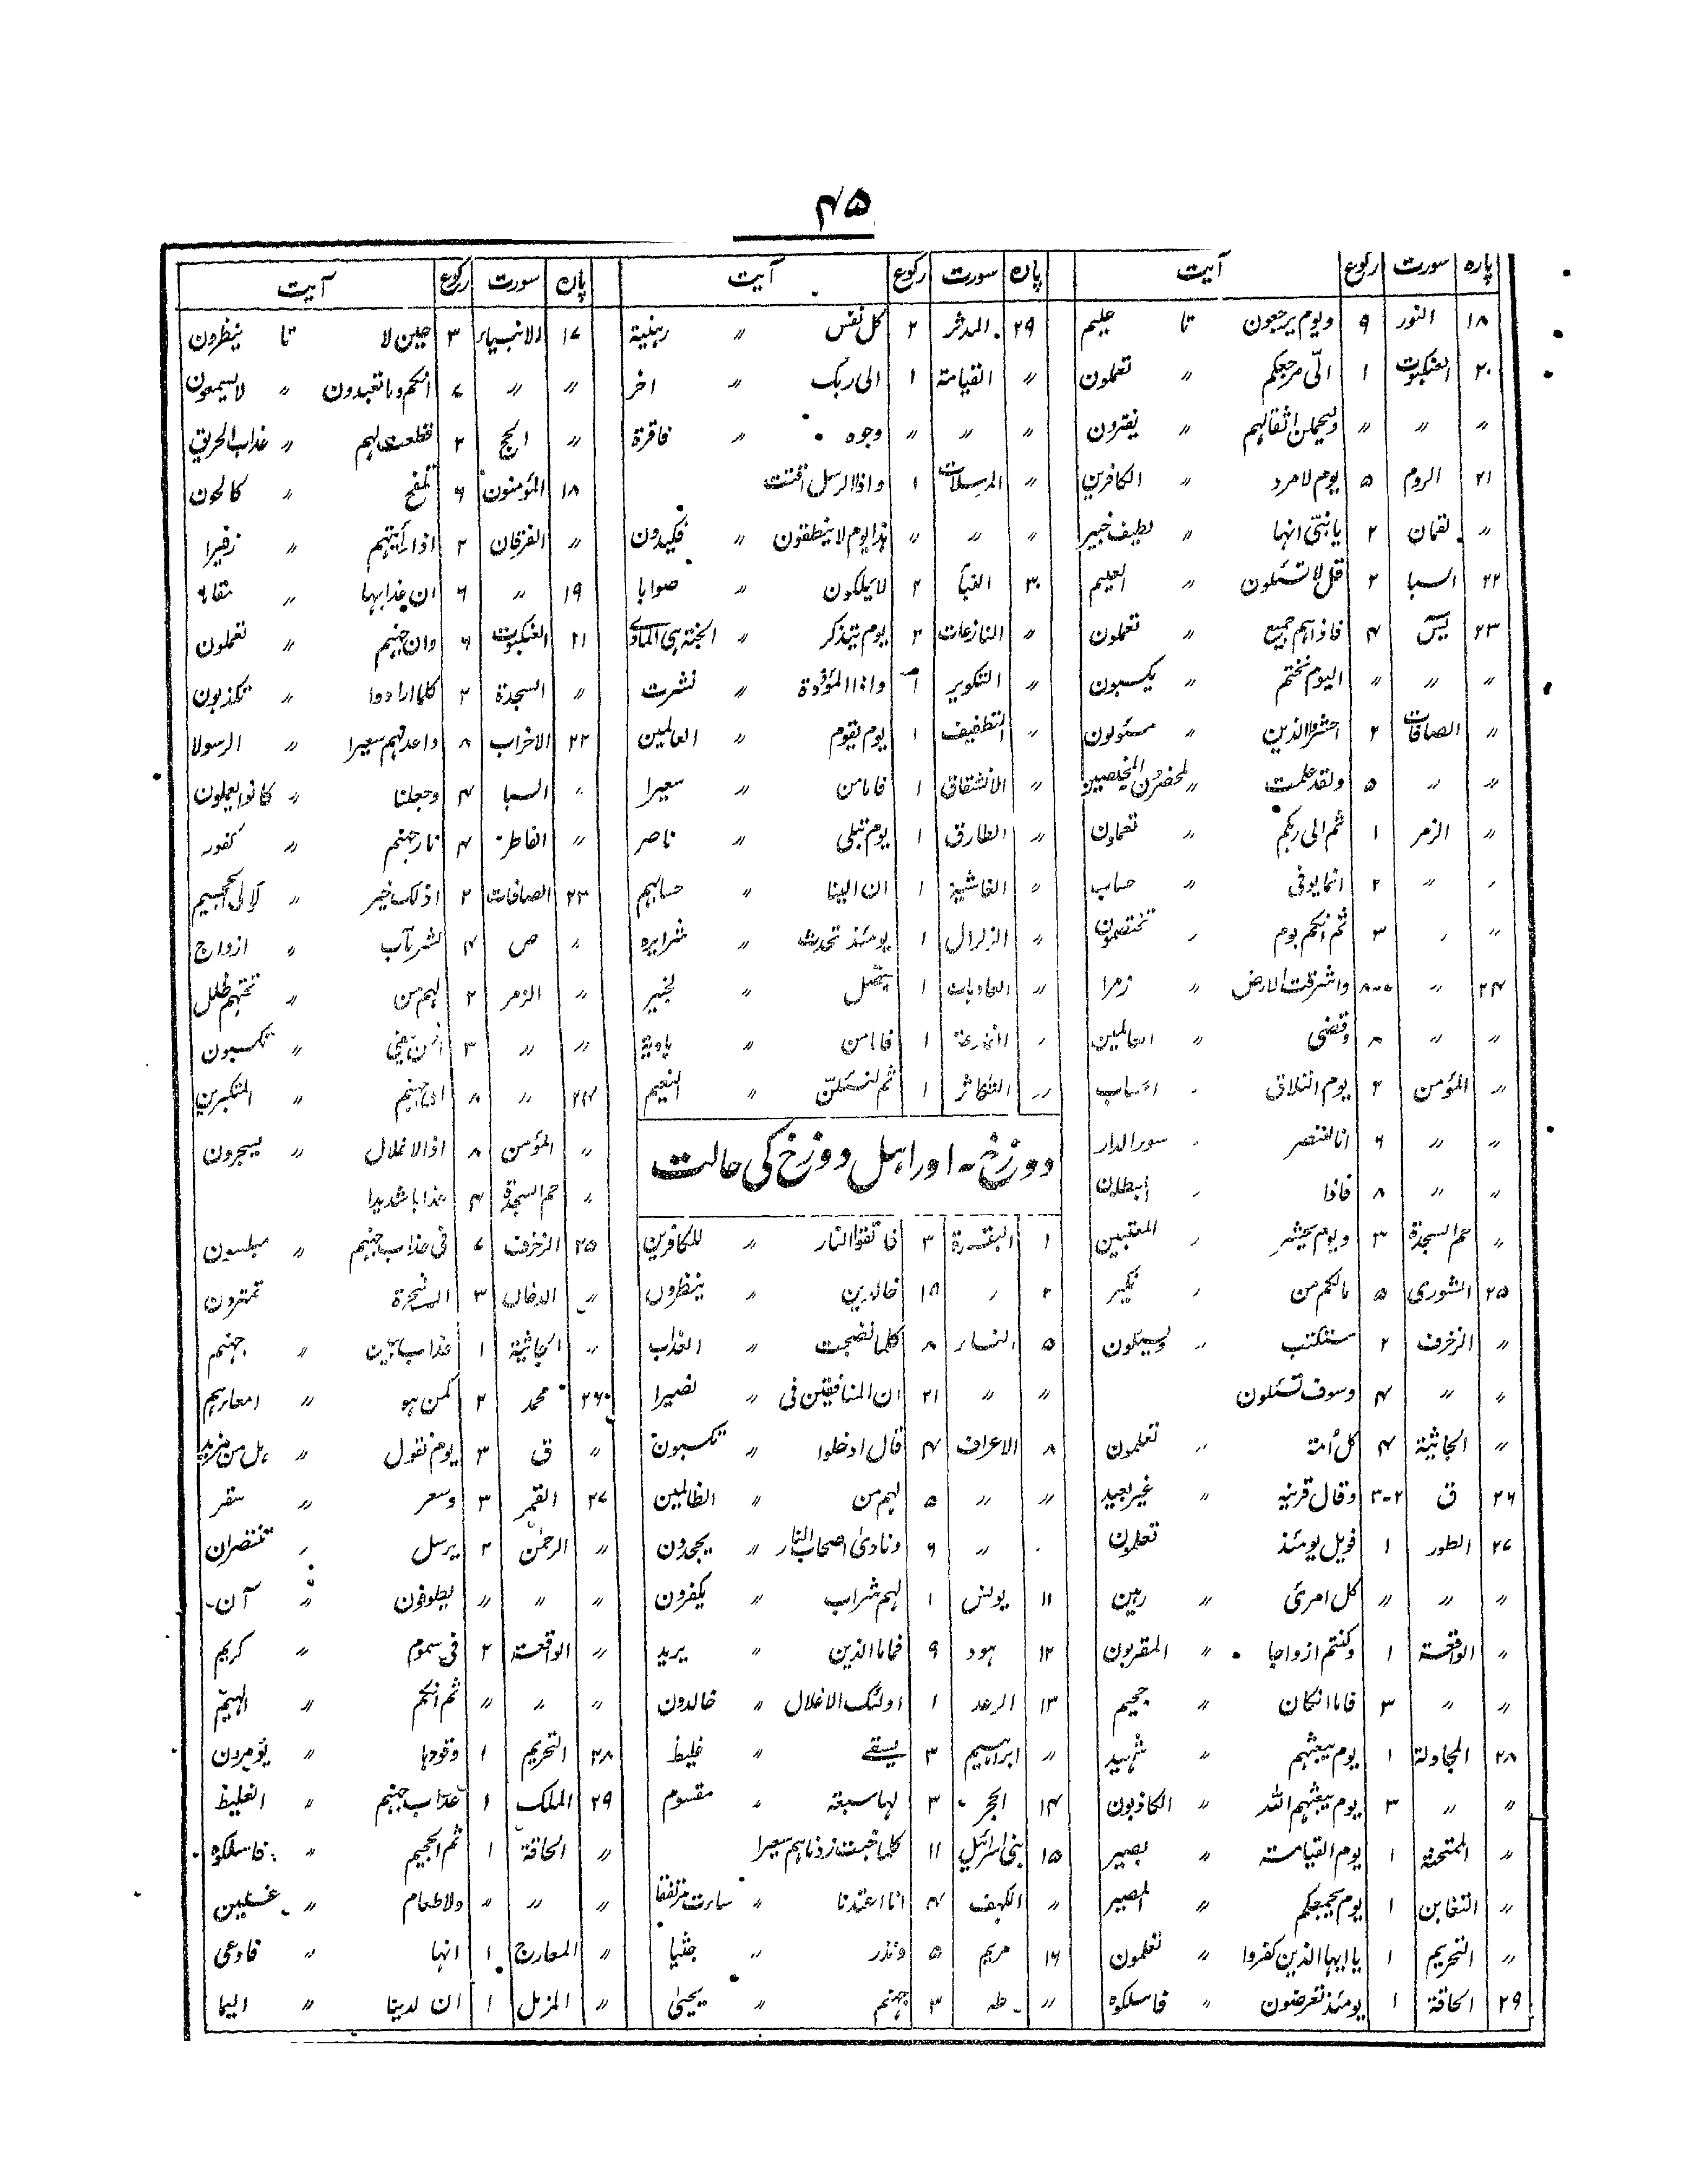 ۴۵
پارہ سورت رکوع آیت
۱۸ النور ۹ ویوم یرجعون تا علیم
۲۰ العنکبوت ۱ الیّ مرجعکم // تعملون
// // // ولیحملن اثقالہم // یفترون
۲۱ الروم ۵ یوم لا مرد // الکافرین
// لقمان ۲ یا بنیّ انہا // لطیف خبیر
۲۲ السبا ۲ قل لا تسئلون // العلیم
۲۳ یٰسٓ ۴ فاذا ہم جمیع // تعملون
// // // الیوم نختم // یکسبون
// الصافات ۲ احشروا الذین // مسئولون
// // ۵ ولقد علمت // لمحضرون المخلصین
// الزمر ۱ ثم الی ربکم // تعملون
// // ۲ انما یوفی // حساب
// // ۳ ثم انکم یوم // تختصمون
۲۴ // واشرقت الارض // زمرا
// // ۸ وقضی // العالمین
// المؤمن ۲ یوم التلاق // الحساب
// // ۶ انا لننصر // سوء الدار
// // ۸ فاذا // المبطلون
// حم السجدۃ ۳ ویوم یحشر // المعتبین
۲۵ الشوری ۵ مالکم من // نکیر
// الزخرف ۲ ستکتب // ویسئلون
// // ۴ وسوف تسئلون
// الجاثیۃ ۴ کل امۃ // تعملون
۲۶ ق ۲-۳ وقال قرینہ // غیر بعید
۲۷ الطور ۱ فویل یومئذ // تعملون
// // // کل امرئ // رہین
// الواقعۃ ۱ وکنتم ازواجا // المقربون
// // ۳ فاما ان کان // جحیم
۲۸ المجادلۃ ۱ یوم یبعثہم // شہید
// // ۳ یوم یبعثہم اللہ // الکاذبون
// الممتحنۃ ۱ یوم القیامۃ // بصیر
// التغابن ۱ یوم یجمعکم // المصیر
// التحریم ۱ یا ایہا الذین کفروا // تعملون
۲۹ الحاقۃ ۱ یومئذ تعرضون // فاسلکوہ
پارہ سورت رکوع آیت
۲۹ المدثر ۲ کل نفس // رہینۃ
// القیامۃ ۱ الی ربک // اخر
// // // وجوہ // فاقرۃ
// المرسلات ۱ واذا الرسل اقتت
// // // ہذا یوم لا ینطقون // فکیدون
۳۰ النبأ ۲ لا یملکون // صوابا
// النازعات ۲ یوم یتذکر // الجنۃ ہی الماوی
// التکویر ۱ واذا المؤودۃ // نشرت
// التطفیف ۱ یوم یقوم // العالمین
// الانشقاق ۱ فاما من // سعیرا
// الطارق ۱ یوم تبلی // ناصر
// الغاشیۃ ۱ ان الینا // حسابہم
// الزلزال ۱ یومئذ تحدث // شرا یرہ
// العادیات ۱ // لخبیر
// القارعۃ ۱ فاما من // ہاویۃ
// التکاثر ۱ ثم لتسئلنّ // النعیم
دوزخ ۔ اور اہل دوزخ کی حالت
۱ البقرۃ ۳ فاتقوا النار // للکافرین
۲ // ۱۵ خالدین // ینظرون
۵ النساء ۸ کلما نضجت // العذاب
// // ۲۱ ان المنافقین فی // نصیرا
۸ الاعراف ۴ قال ادخلوا // تکسبون
// // ۵ لہم من // الظالمین
// // ۶ ونادی اصحاب النار // یجحدون
۱۱ یونس ۱ لہم شراب // یکفرون
۱۲ ہود ۹ فاما الذین // یرید
۱۳ الرعد ۱ اولئک الاغلال // خالدون
// ابراہیم ۳ یسقے // غلیظ
۱۴ الحجر ۳ لہا سبعۃ // مقسوم
۱۵ بنی اسرائیل ۱۱ کلما خبت زدناہم سعیرا
// الکہف ۴ انا اعتدنا // ساءت مرتفقا
۱۶ مریم ۵ ونذر // جثیا
// طہ ۳ جہنم // یحییٰ
پارہ سورت رکوع آیت
۱۷ الانبیاء ۳ حین لا تا ینظرون
// // ۷ انکم وما تعبدون // لا یسمعون
// الحج ۲ قطعت لہم // عذاب الحریق
۱۸ المؤمنون ۶ تلفح // کالحون
// الفرقان ۲ اذا رأیتہم // زفیرا
۱۹ // ۶ ان عذابہا // مقاما
۲۱ العنکبوت ۶ وان جہنم // تعملون
// السجدۃ ۲ کلما ارادوا // تکذبون
۲۲ الاحزاب ۸ واعد لہم سعیرا // الرسولا
// السبا ۴ وجعلنا // کانوا یعملون
// الفاطر ۴ نار جہنم // کفور
۲۳ الصافات ۲ اذلک خیر // لا الی الجحیم
// ص ۴ لشر مآب // ازواج
// الزمر ۲ لہم من // تحتہم ظلل
// // ۳ افمن یتقی // تکسبون
۲۴ // ۸ الی جہنم // المتکبرین
// المؤمن ۸ اذ الاغلال // یسجرون
// حم السجدۃ ۴ عذابا شدیدا
۲۵ الزخرف ۷ فی عذاب جہنم // مبلسون
// الدخان ۳ الشجرۃ تمترون
// الجاثیۃ ۱ عذاب مہین // جہنم
۲۶ محمد ۲ کمن ہو // امعاءہم
// ق ۳ یوم نقول // ہل من مزید
۲۷ القمر ۳ وسعر // سقر
// الرحمٰن ۲ یرسل // تنتصران
// // // یطوفون // آن
// الواقعۃ ۲ فی سموم // کریم
// // // ثم انکم // الہیم
۲۸ التحریم ۱ وقودہا // یؤمرون
۲۹ الملک ۱ عذاب جہنم // الغلیظ
// الحاقۃ ۱ ثم الجحیم // فاسلکوہ
// // // ولا طعام // غسلین
// المعارج ۱ انہا // فاوعی
// المزمل ۱ ان لدینا // الیما